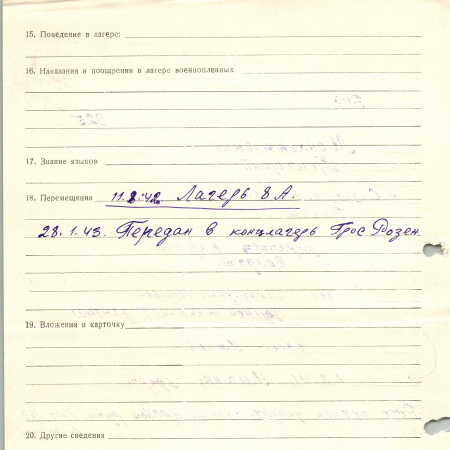 15. Поведение в лагере:
16. Наказания и поощрения в лагере военнопленных
17. Знание языков
18. Перемещения 11.8.42 Лагерь 8 А.
28.1.43. Передан в концлагерь Грос Розен
19. Вложения в карточку
20. Другие сведения